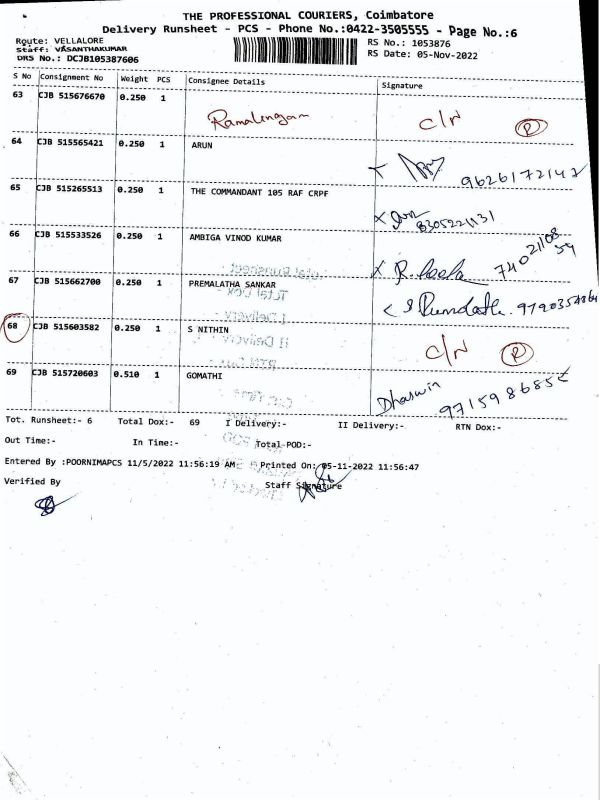 THE PROFESSIONAL COURIERS, Coimbatore
Delivery Runsheet - PCS - Phone No.:0422-3505555 - Page No.:6
Route: VELLALORE
Staff: VASANTHAKUMAR
DRS No.: DCJB105387606
RS No.: 1053876
RS Date: 05-Nov-2022
S No Consignment No Weight PCS Consignee Details Signature
63 CJB 515676670 0.250 1 Ramalingam C/N R
64 CJB 515565421 0.250 1 ARUN 9626172142
65 CJB 515265513 0.250 1 THE COMMANDANT 105 RAF CRPF 8305221131
66 CJB 515533526 0.250 1 AMBIGA VINOD KUMAR R. 7402110859
67 CJB 515662700 0.250 1 PREMALATHA SANKAR
68 CJB 515603582 0.250 1 S NITHIN C/N R
69 CJB 515720603 0.510 1 GOMATHI Dharwin
Tot. Runsheet:- 6 Total Dox:- 69 I Delivery:- II Delivery:- RTN Dox:-
Out Time:- In Time:- Total POD:-
Entered By :POORNIMAPCS 11/5/2022 11:56:19 AM Printed On: 05-11-2022 11:56:47
Verified By Staff Signature